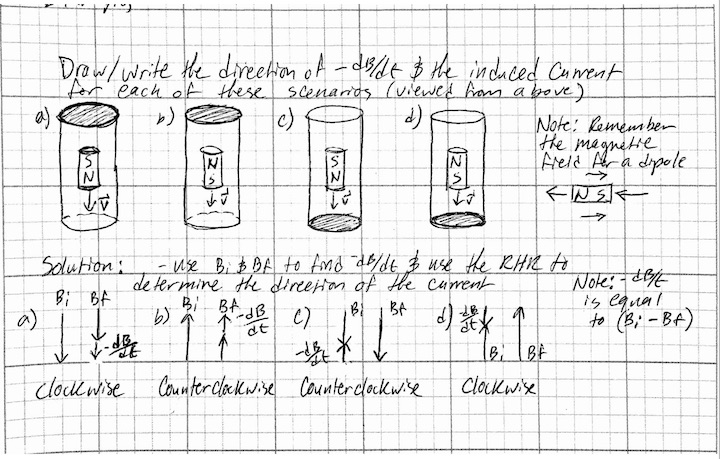 Draw/write the direction of -dB/dt & the induced current
for each of these scenarios (viewed from above)
a) b) c) d)
S N S N
N S N S
v v v v
Note: Remember
the magnetic
field for a dipole
N S
Solution: -use Bi & Bf to find -dB/dt & use the RHR to
determine the direction of the current
Note: -dB/dt
is equal
to (Bi - Bf)
a) Bi Bf -dB/dt
b) Bi Bf -dB/dt
c) Bi Bf -dB/dt
d) -dB/dt Bi Bf
Clockwise Counterclockwise Counterclockwise Clockwise